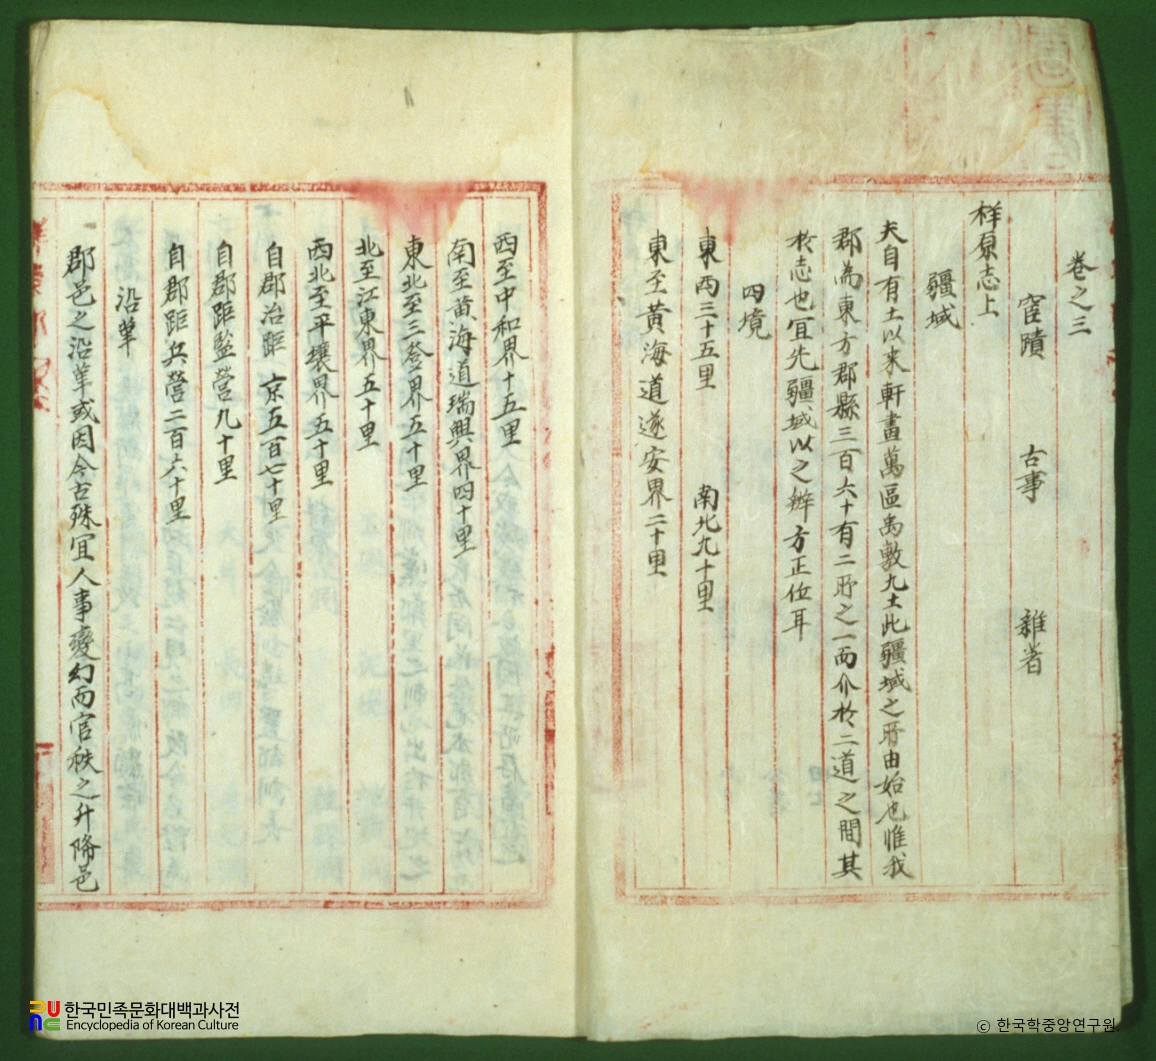 卷之三
宦蹟 古事 雜著
祥原志上
疆域
夫自有土以來軒畫萬區禹敷九土此疆域之所由始也惟我
郡爲東方郡縣三百六十有二所之一而介於二道之間其
於志也宜先疆域以之辨方正位耳
四境
東西三十五里 南北九十里
東至黃海道遂安界二十里
西至中和界十五里
南至黃海道瑞興界四十里
東北至三登界五十里
北至江東界五十里
西北至平壤界五十里
自郡治距 京五百七十里
自郡距監營九十里
自郡距兵營二百六十里
沿革
郡邑之沿革或因今古殊宜人事變幻而官秩之升降邑
한국민족문화대백과사전
Encyclopedia of Korean Culture
© 한국학중앙연구원